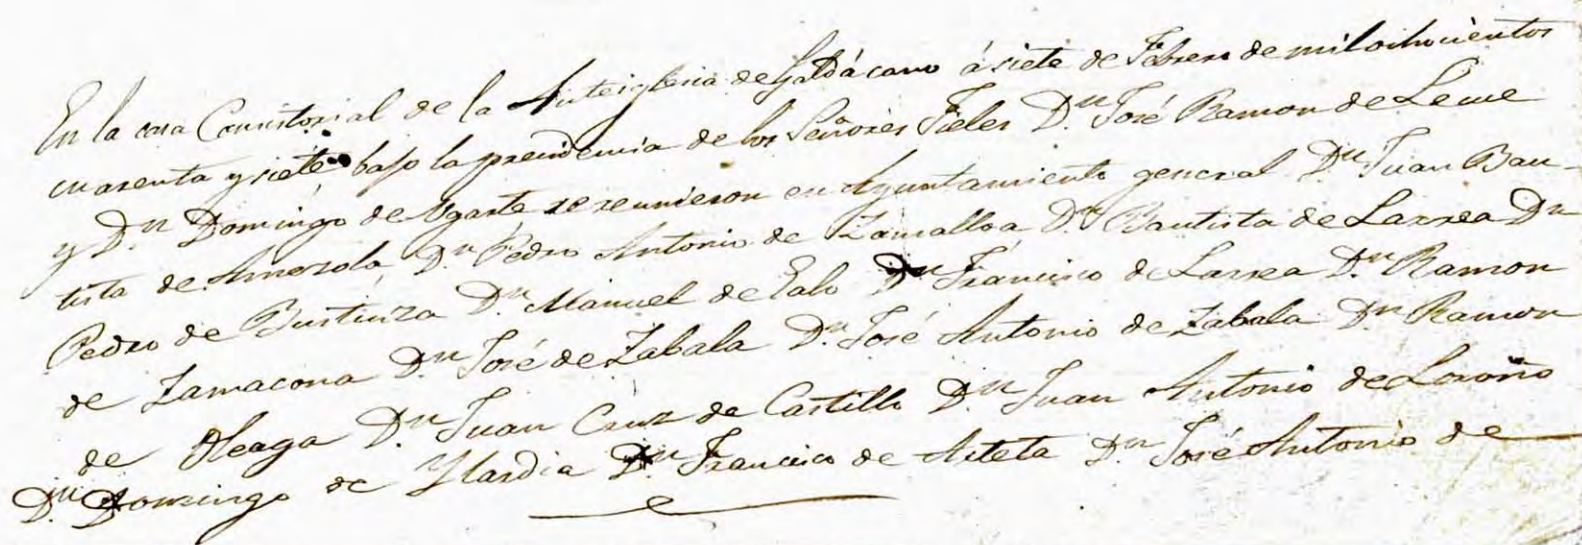 En la casa Consistorial de la Anteiglesia de Galdácano á siete de Febrero de mil ochocientos
cuarenta y siete bajo la presidencia de los Señores Fieles Dn José Ramon de Leme
y Dn Domingo de Ugarte se reunieron en Ayuntamiento general Dn Juan Bau-
tista de Amezola, Dn Pedro Antonio de Zamalloa Dn Bautista de Larrea Dn
Pedro de Bustinza Dn Manuel de Ealo Dn Francisco de Larrea Dn Ramon
de Zamacona Dn José de Zabala Dn José Antonio de Zabala Dn Ramon
de Oleaga Dn Juan Cruz de Castillo Dn Juan Antonio de Loroño
Dn Domingo de Ylardia Dn Francisco de Arteta Dn José Antonio de